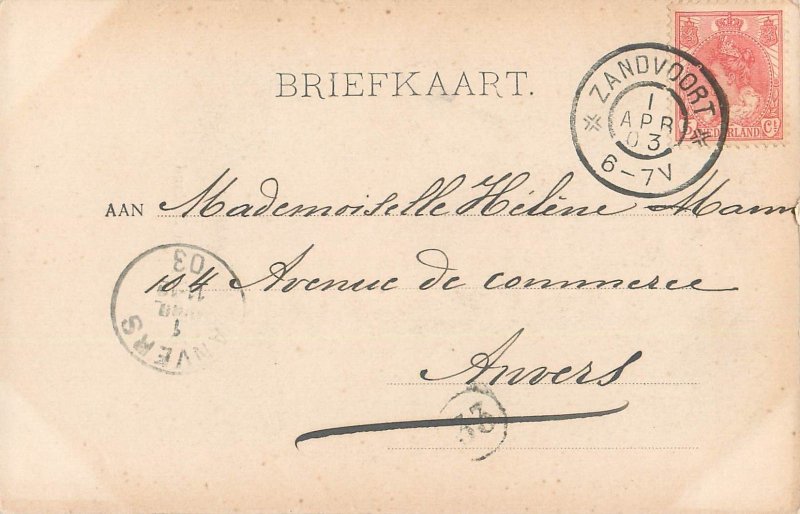 BRIEFKAART.
ZANDVOORT
1
APR
03
6-7V
5 NEDERLAND Ct
AAN Mademoiselle Hélène Mann
104 Avenue de commerce
Anvers
ANVERS
1
03
33